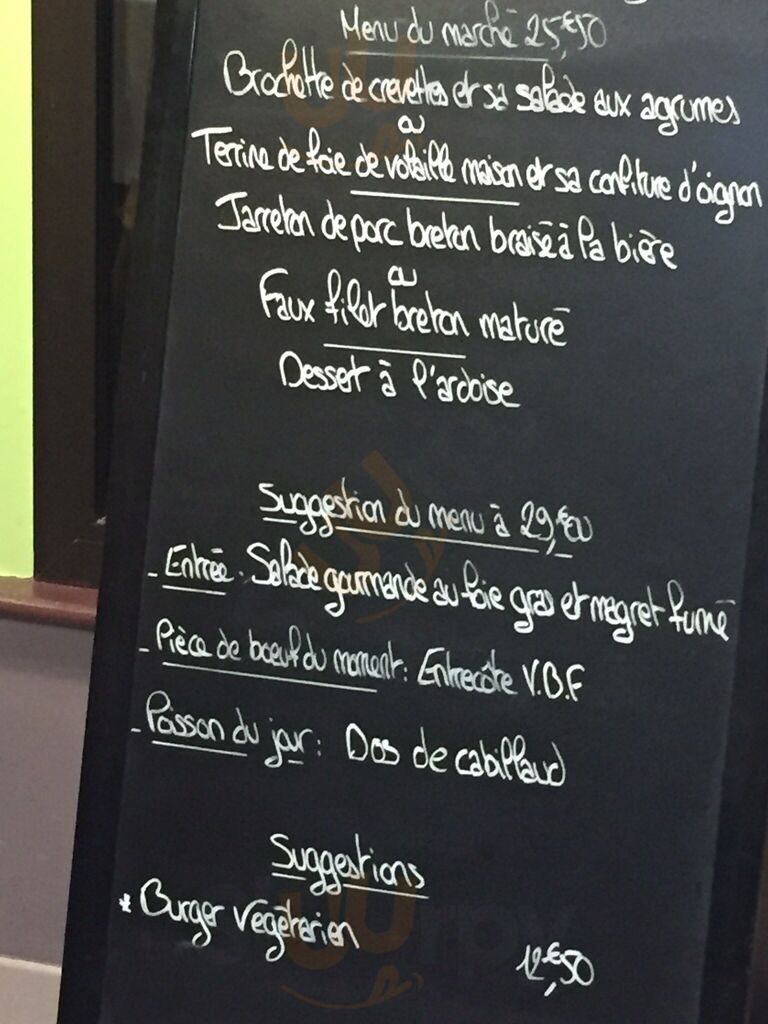 Menu du marché 25,€50
Brochette de crevettes et sa salade aux agrumes
ou
Terrine de foie de volaille maison et sa confiture d'oignon
Jarreton de porc breton braisé à la bière
ou
Faux filet breton maturé
Dessert à l'ardoise
Suggestion du menu à 29,€00
- Entrée. Salade gourmande au foie gras et magret fumé
- Pièce de boeuf du moment: Entrecôte V.B.F
- Poisson du jour: Dos de cabillaud
Suggestions
* Burger végétarien
12,€50